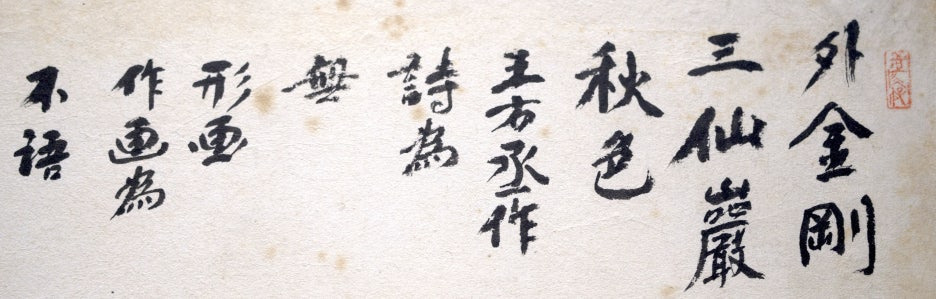 外金剛
三仙巖
秋色
王右丞作
詩為
無
形画
作画為
不語